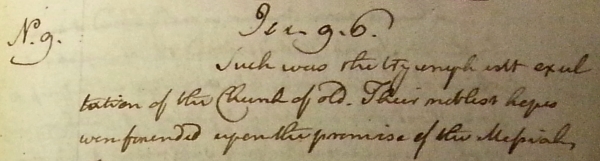 No. 9.
Isa. 9. 6.
Such was the tryumph and exul
tation of the Church of old. Their noblest hopes
were founded upon the promise of the Messiah,